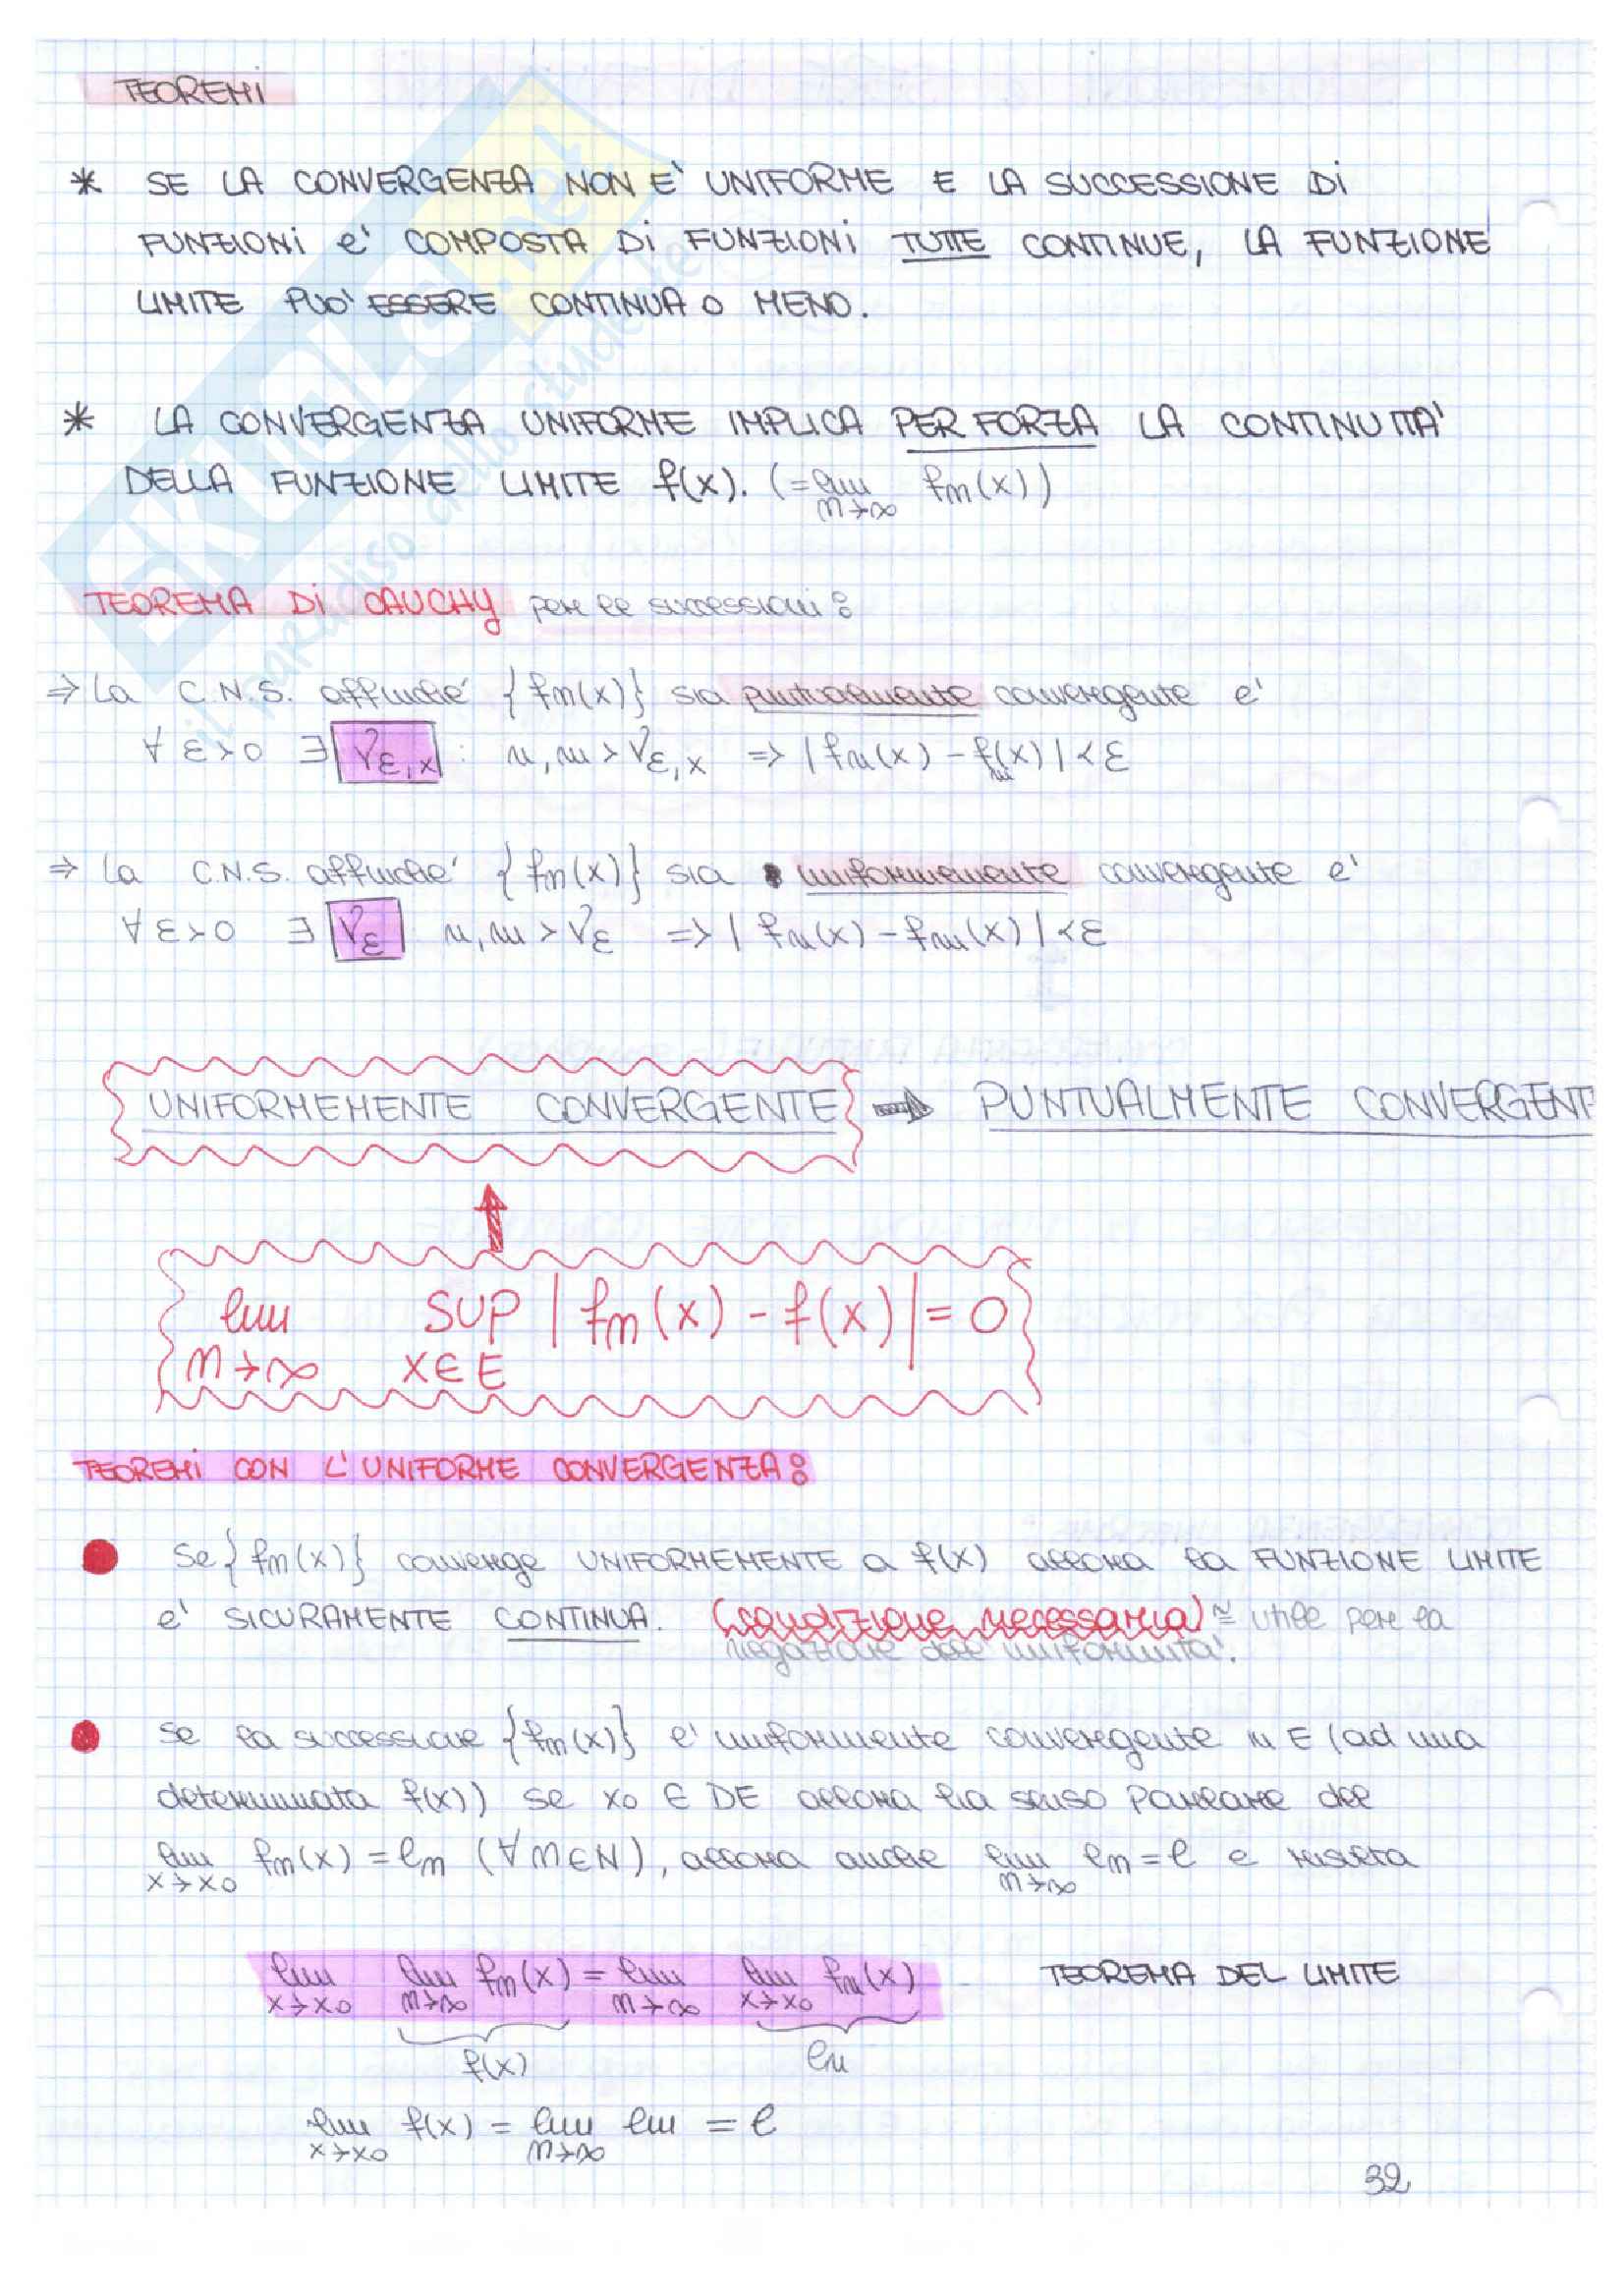 TEOREMI
* SE LA CONVERGENZA NON E' UNIFORME E LA SUCCESSIONE Di
FUNZIONi e' COMPOSTA Di FUNZIONi TUTTE CONTINUE, LA FUNZIONE
LIMITE PUO' ESSERE CONTINUA O MENO.
* LA CONVERGENZA UNIFORME IMPLICA PER FORZA LA CONTINUITA'
DELLA FUNZIONE LIMITE f(x). (= lim fn(x))
n→∞
TEOREMA Di CAUCHY per le successioni:
⇒ La C.N.S. affinche' {fn(x)} sia puntualmente convergente e'
∀ ε>0 ∃ νε,x : n,m > νε,x => |fn(x) - fm(x)| < ε
⇒ La C.N.S. affinche' {fn(x)} sia uniformemente convergente e'
∀ ε>0 ∃ νε n,m > νε => | fn(x) - fm(x) | < ε
UNIFORMEMENTE CONVERGENTE ⇒ PUNTUALMENTE CONVERGENT
lim SUP | fn(x) - f(x) | = 0
n→∞ x∈E
TEOREMi CON L'UNIFORME CONVERGENZA:
Se {fn(x)} converge UNIFORMEMENTE a f(x) allora la FUNZIONE LIMITE
e' SICURAMENTE CONTINUA. (condizione necessaria) ≅ utile per la
negazione dell'uniformita'.
Se la successione {fn(x)} e' uniformente convergente in E (ad una
determinata f(x)) se x0 ∈ DE allora ha senso parlare del
lim fn(x) = ln (∀n∈N), allora anche lim ln = l e risulta
x→x0 n→∞
lim lim fn(x) = lim lim fn(x) TEOREMA DEL LIMITE
x→x0 n→∞ n→∞ x→x0
f(x) ln
lim f(x) = lim ln = l
x→x0 n→∞
32
SKUOLA.net
il paradiso dello studente